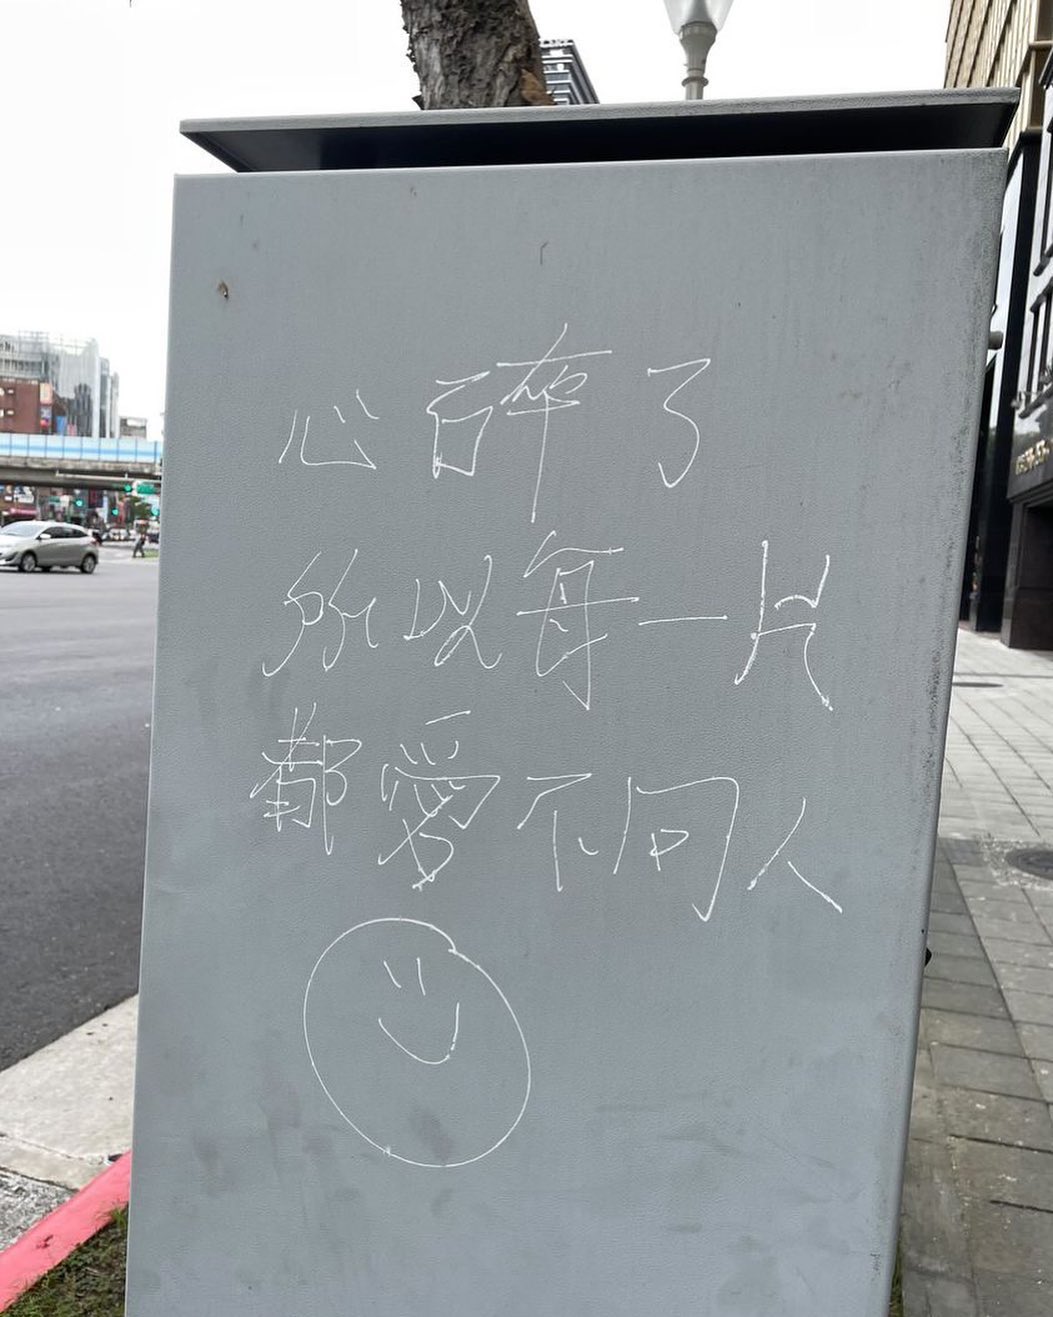 心碎了
所以每一片
都愛不同人